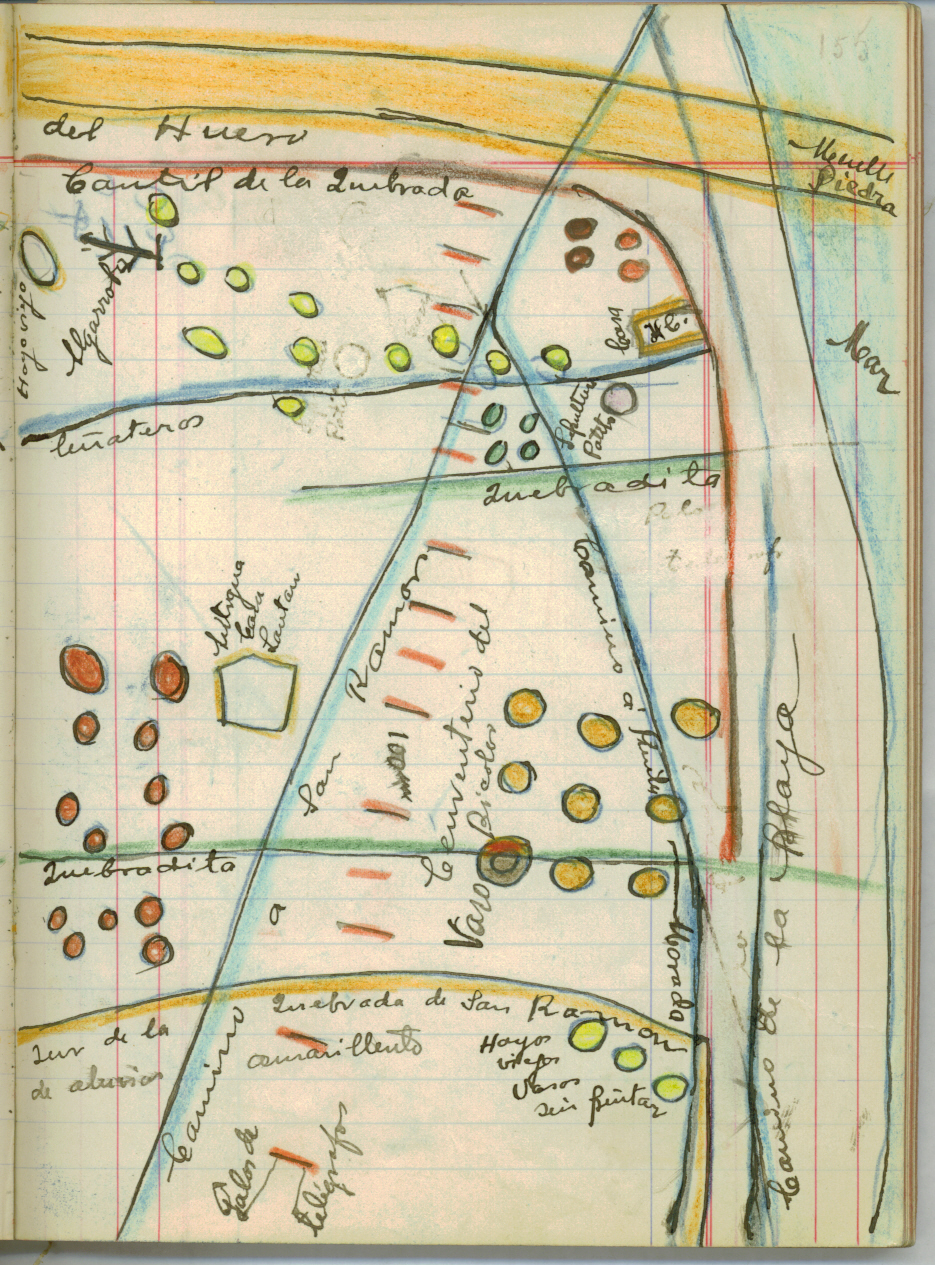 155
del Hueso
Muelle
Piedra
Cantil de la Quebrada
Hoyo viejo
Algarrobo
Casa
Mar
Leñateros
Sepultura
Quebradita
Antigua
Casa
San Ramon
Camino a
Cementerio del
Vaso
Quebradita
a
Morada
Camino de la Playa
Quebrada de San Ramon
Sur de la
de aluvios
amarillento
Hoyos
viejos
Vasos
sin pintar
Camino
Palos de
telégrafos